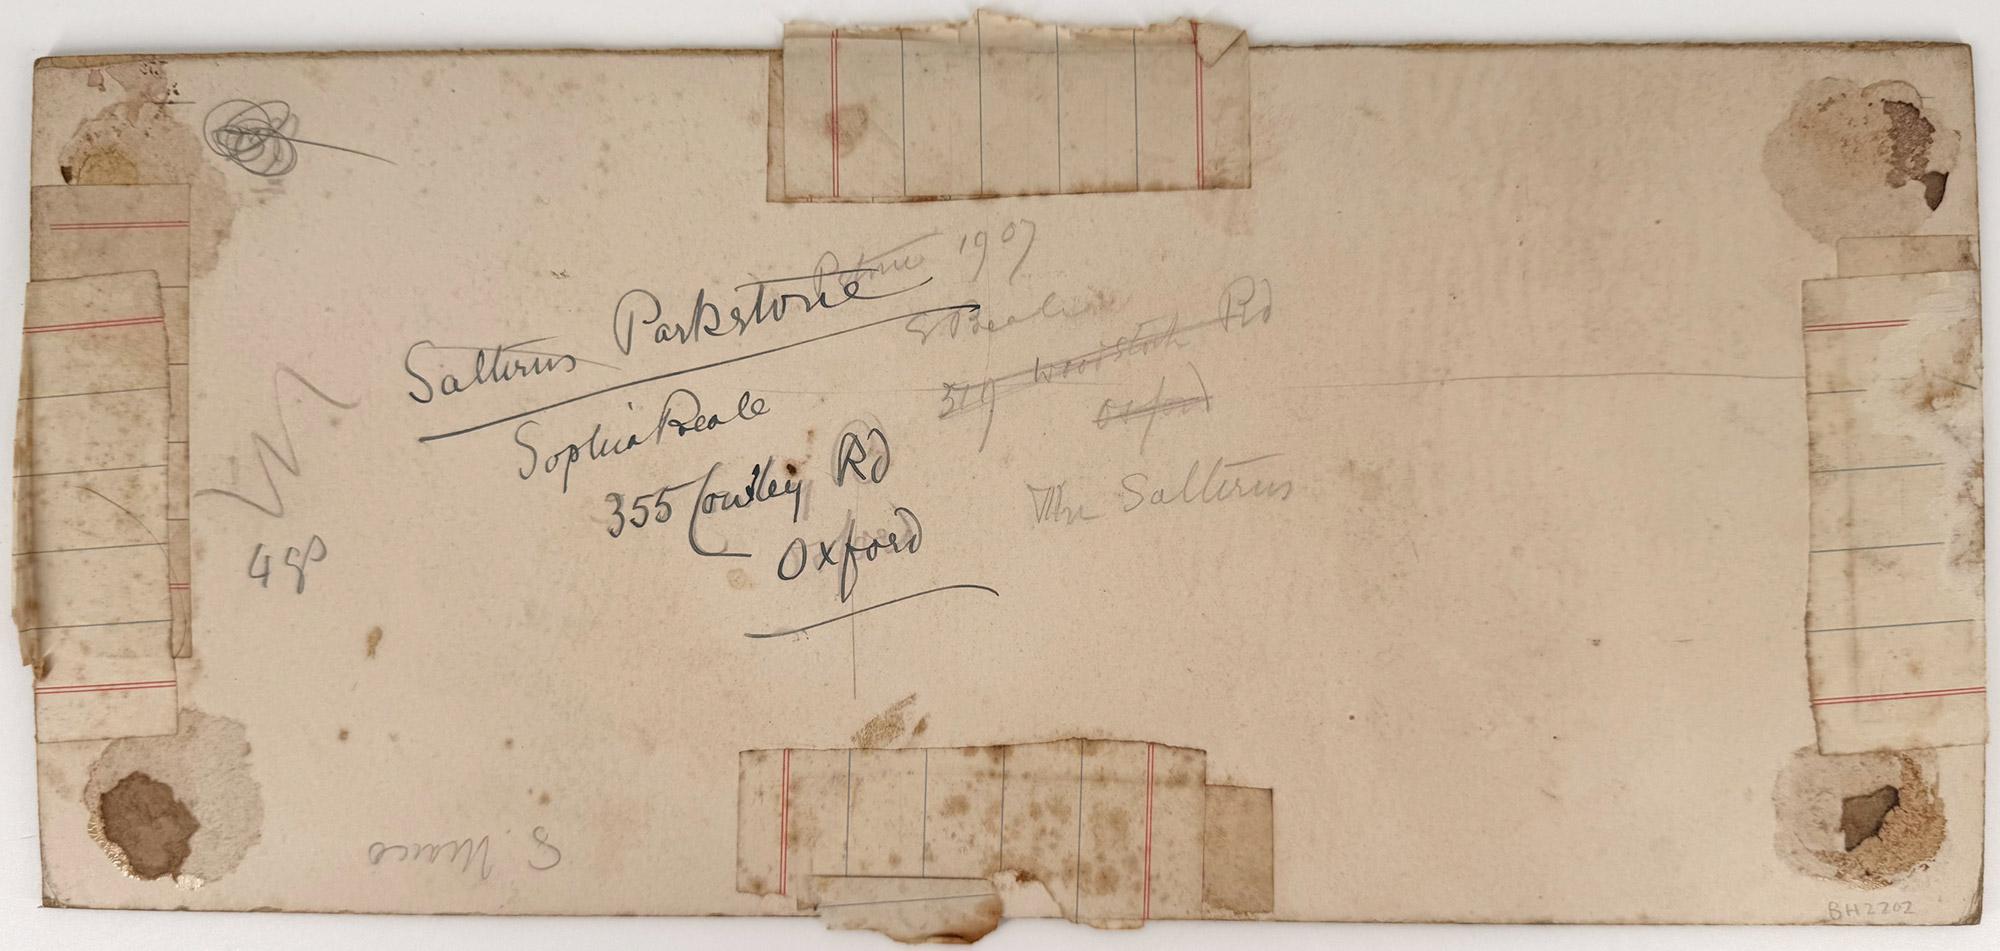 1907
Salterns Parkstone
S Beale
Woodstock Rd
Oxford
Sophia Beale
355 Cowley Rd
Oxford
The Salterns
4 gs
S. Marco
BH2202